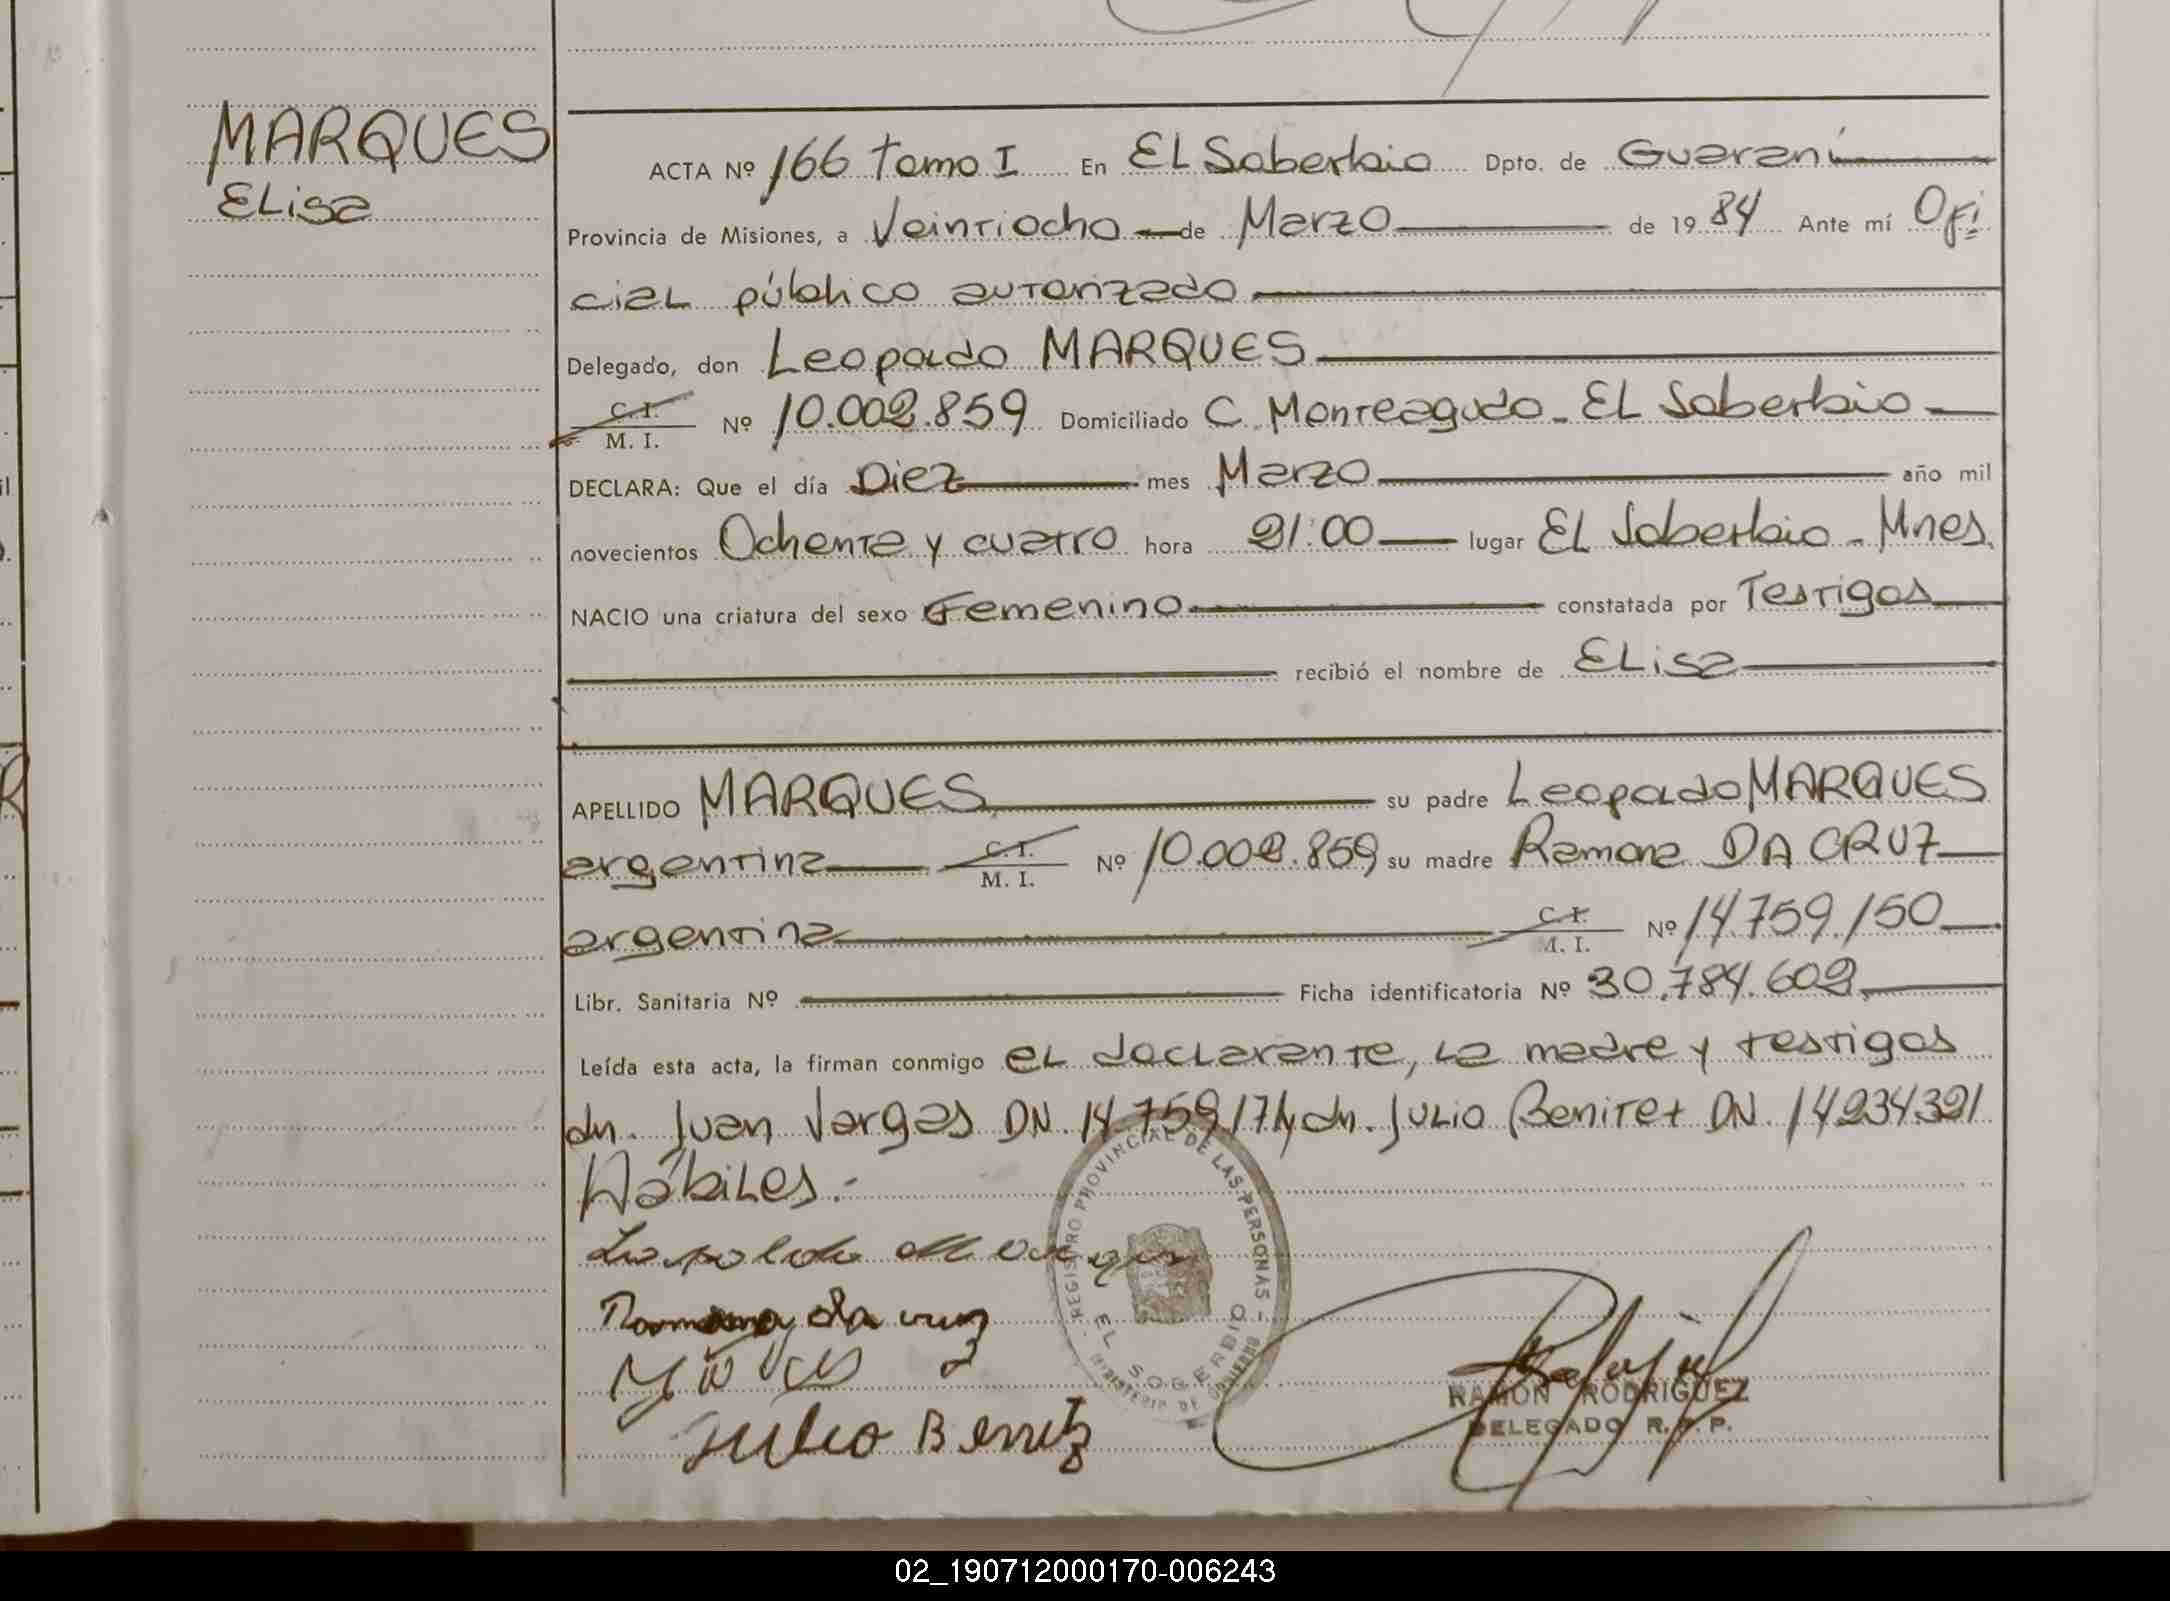 MARQUES
ELisa
ACTA Nº 166 tomo I En EL Soberbio Dpto. de Guaraní
Provincia de Misiones, a Veintiocho de Marzo de 1984 Ante mí Ofi
cial público autorizado
Delegado, don Leopoldo MARQUES
C. I.
M. I. Nº 10.002.859 Domiciliado C. Monteagudo - EL Soberbio
DECLARA: Que el día Diez mes Marzo año mil
novecientos Ochenta y cuatro hora 21:00 lugar EL Soberbio - Mnes.
NACIO una criatura del sexo Femenino constatada por Testigos
recibió el nombre de ELisa
APELLIDO MARQUES su padre Leopoldo MARQUES
argentina C. I.
M. I. Nº 10.002.859 su madre Ramona DA CRUZ
argentina C. I.
M. I. Nº 14.759.150
Libr. Sanitaria Nº Ficha identificatoria Nº 30.784.602
Leída esta acta, la firman conmigo el declarante, la madre y testigos
dn. Juan Vargas DN. 14.759.174 y dn. Julio Benitez DN. 14234321
Hábiles.-
Leopoldo Marques
Ramona da cruz
Julio Benitez
REGISTRO PROVINCIAL DE LAS PERSONAS
EL SOBERBIO
MINISTERIO DE GOBIERNO
RAMON RODRIGUEZ
DELEGADO R.P.P.
02_190712000170-006243